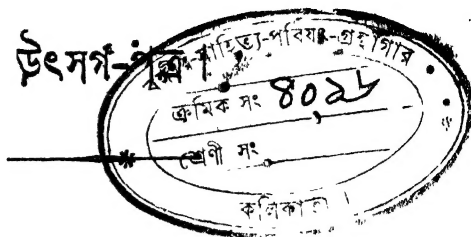 উৎসর্গ-পত্র ।
সাহিত্য-পরিষৎ-গ্রন্থাগার
ক্রমিক সং ৪০২৮
শ্রেণী সং
কলিকাতা ।